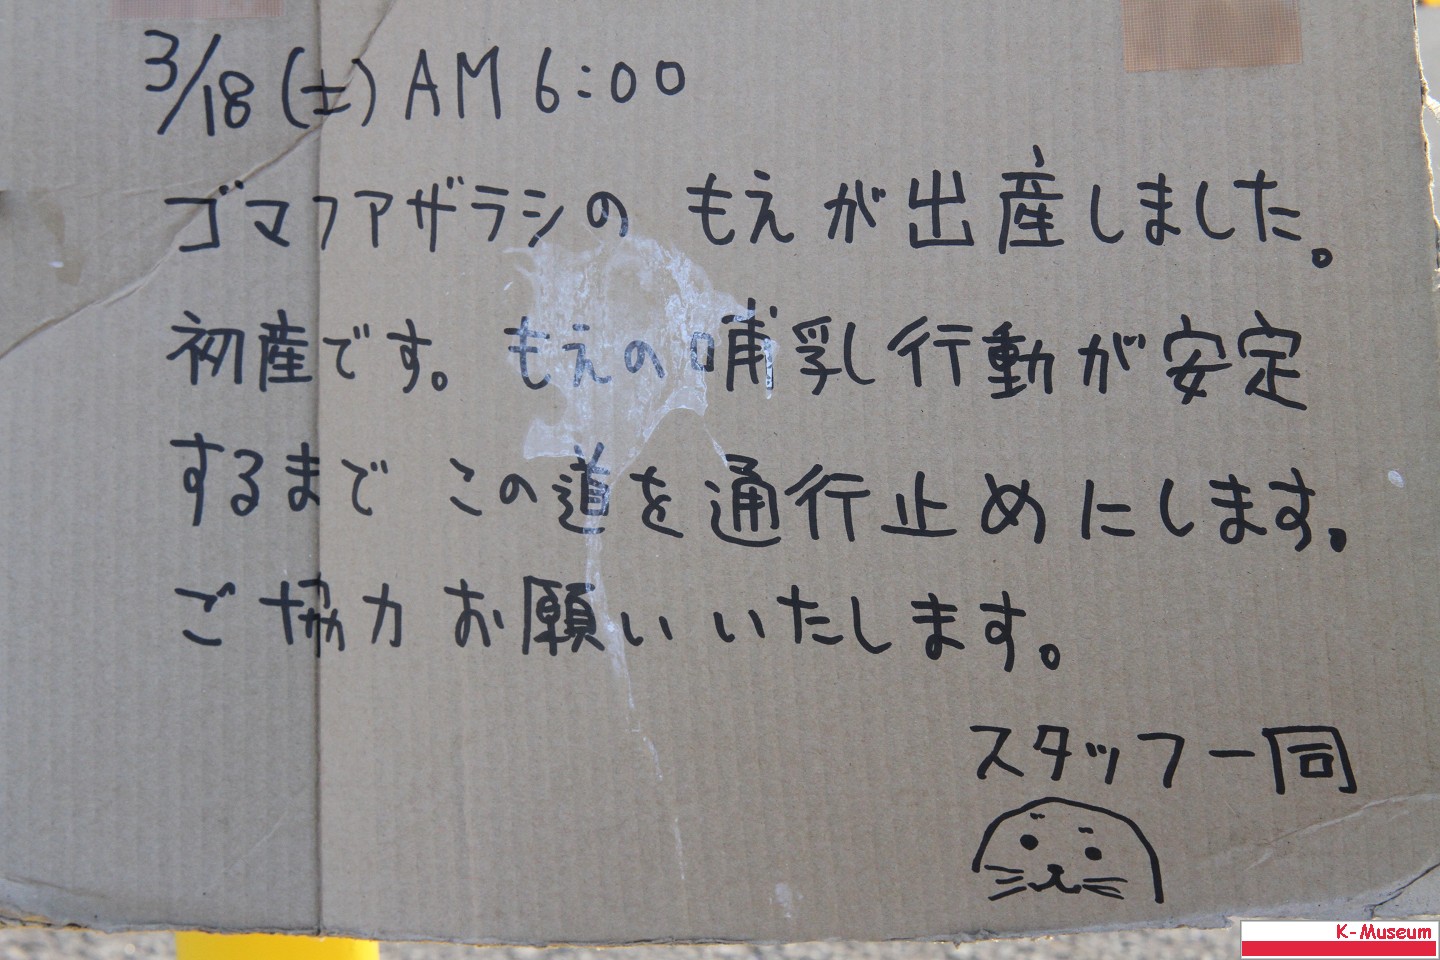 3/18(土) AM 6:00
ゴマフアザラシの もえが出産しました。
初産です。もえの哺乳行動が安定
するまで この道を通行止めにします。
ご協力お願いいたします。
スタッフ一同
K-Museum